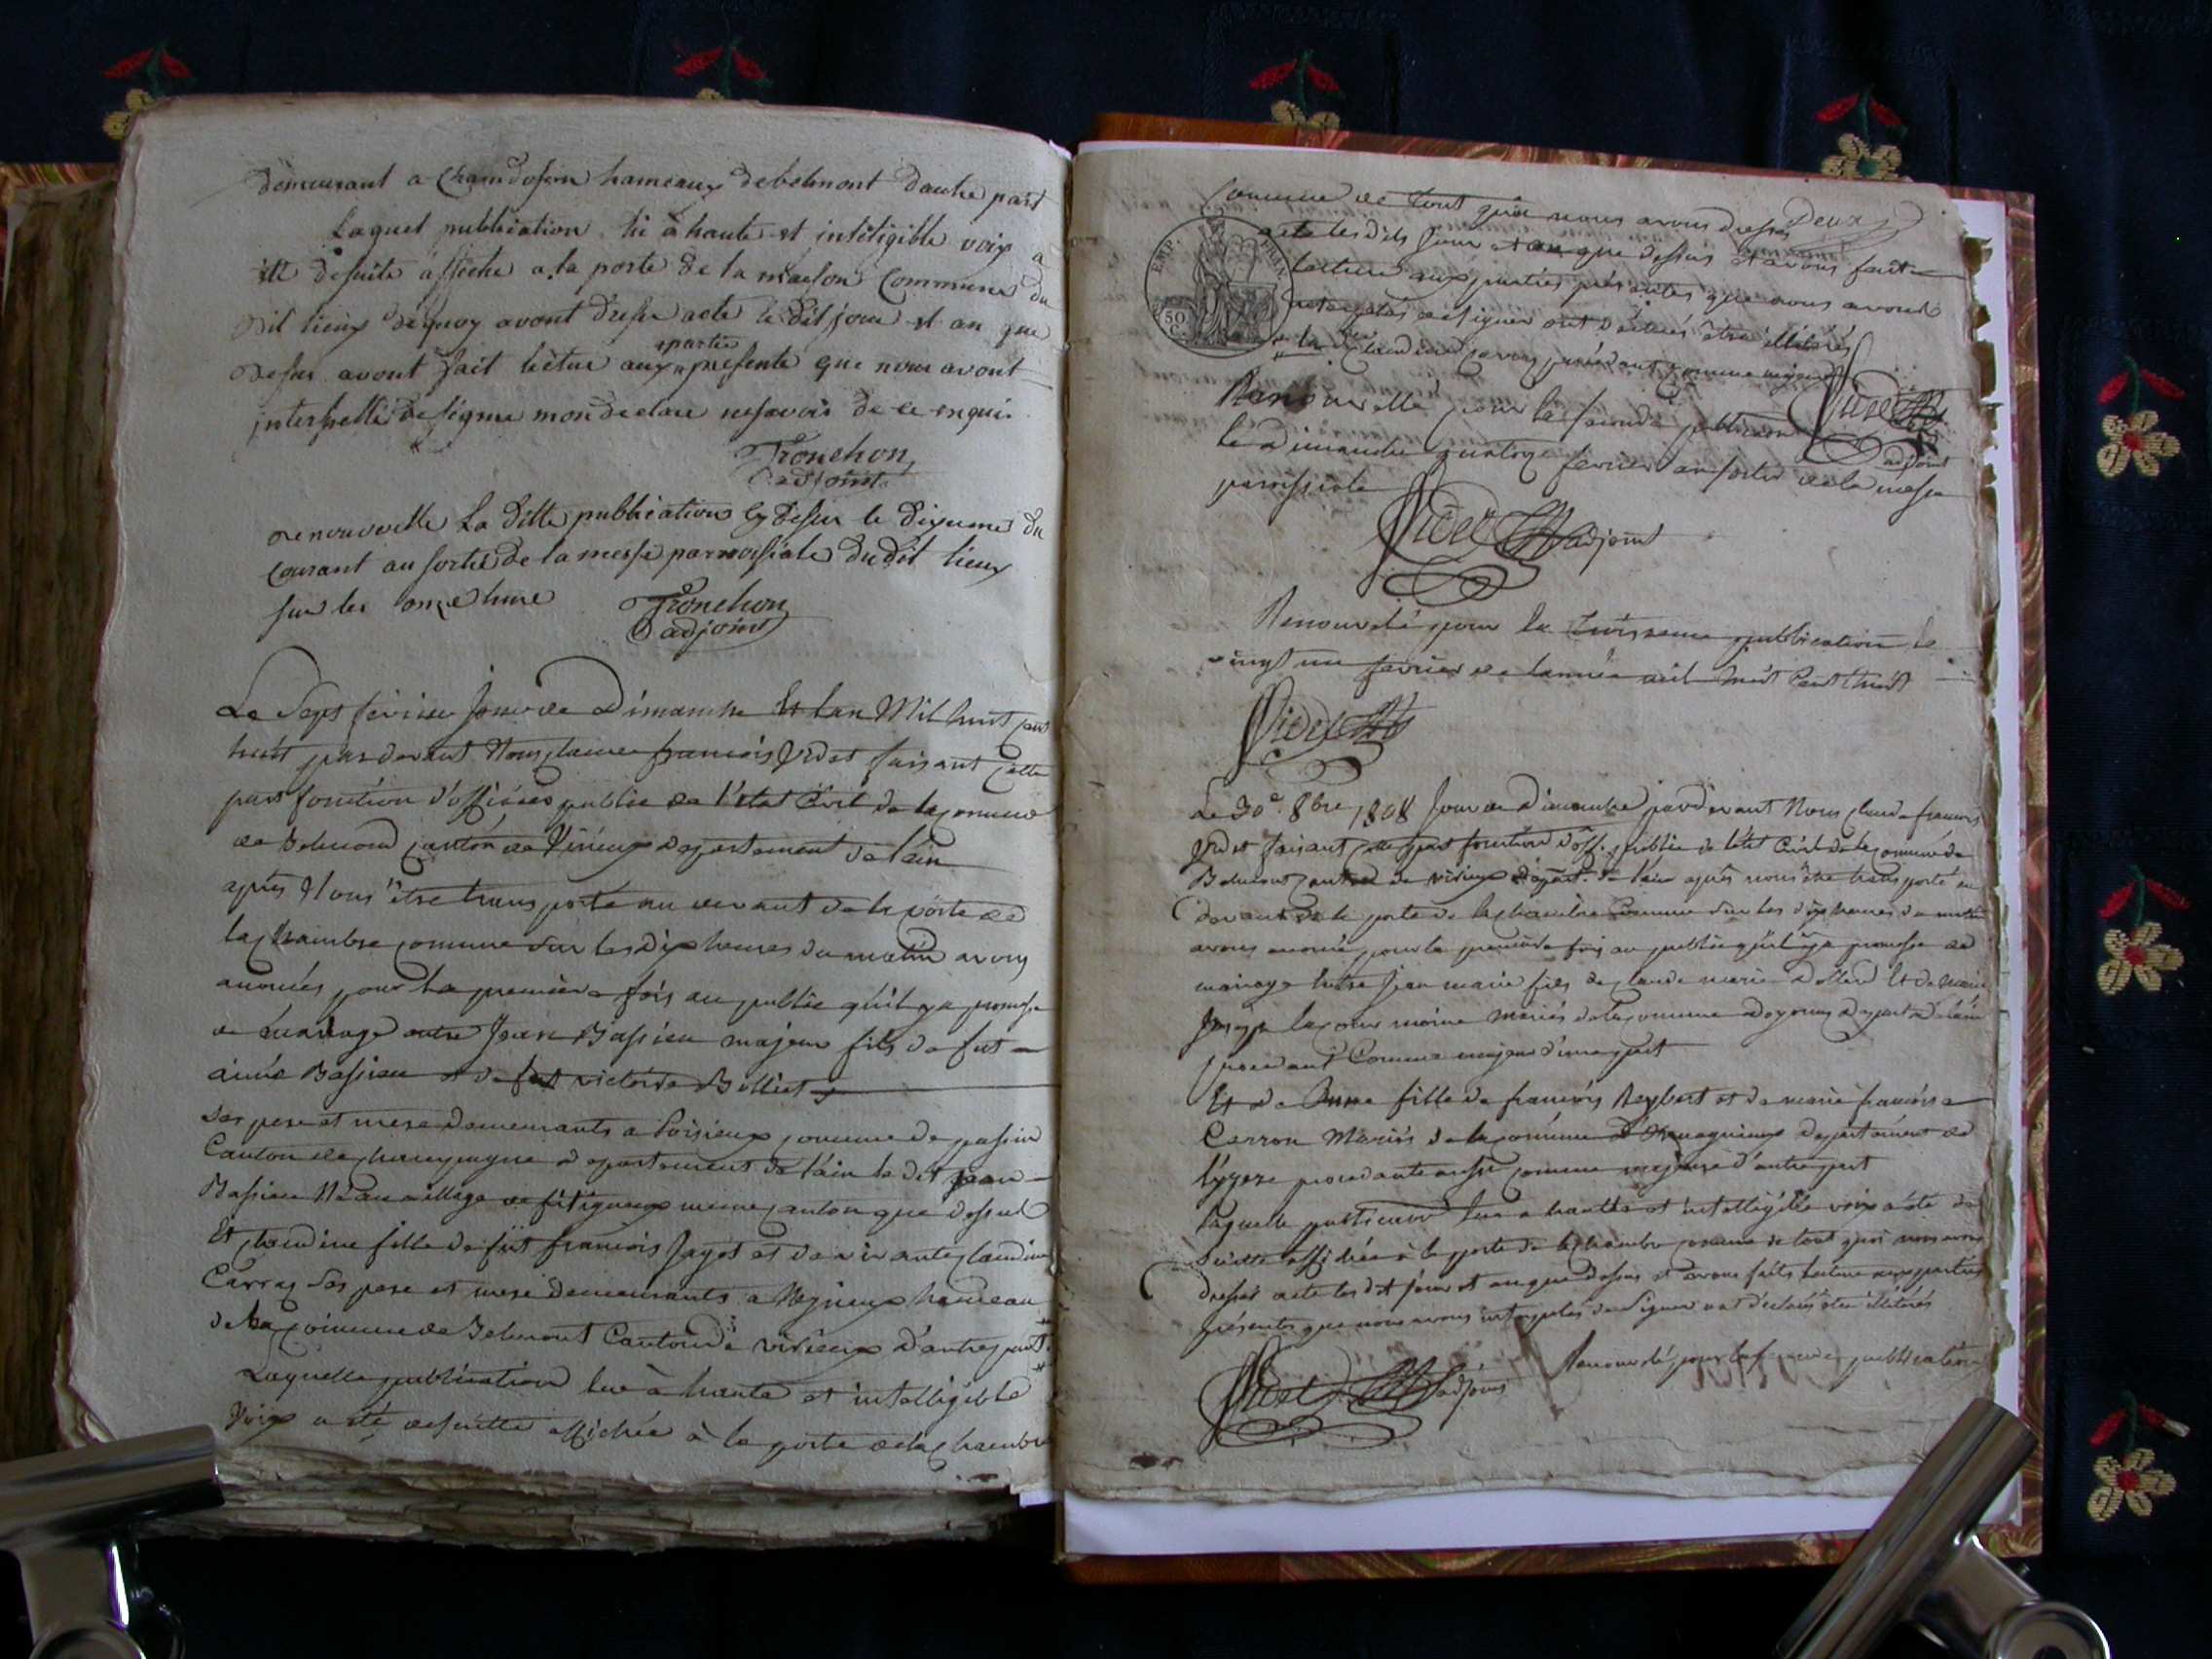 demeurant a hameaux de belmont dautre part
Laquel publication lû à haute et inteligible voix a
été desuite affiché a la porte de la maison Commune du
dit lieux de quoy avont dressé acte le dit jour et an que
desus avont fait lectue aux partie presente que nous avont
interpellé de signe mon declare ne savoir de ce enquis
Tronchon
adjoint
renouvelle La ditte publication cy desus le dixieme du
courant au sortie de la messe parroissiale du dit lieux
sur les onze hure
Tronchon
adjoint
Le Sept février Jour de Dimanche Et Lan Mil huit cent
huit par devant Nous Claude francois Videt faisant cette
part fonction d'officier public de l'état Civil de la comune
de Belmond canton de Virieux departement de l'ain
après Nous être transporté au devant de la porte de
la chambre comune sur les dix heures du matin avons
anoncés pour la premiere fois au public qu'il y a promesse
de mariage entre Jean Bassieu majeur fils de fut
aimé Bassieu et de fut victoire Billiet
ses pere et mere demeurants a Poisieux comune de
Canton de champagne departement de l'ain le dit jean
Bassieu Né au village de meme canton que dessus
Et Claudine fille de fut francois Jayet et de vivante Claudine
Carray Ses pere et mere demeurants a hameau
de la comune de Belmont Canton de virieux d'autre part
Laquelle publication lue à haute et intelligible
Voix a été desuitte affichée à la porte de la chambre
Deux
comune de tout quoi nous avons dressés
acte les dits jour et an que dessus et avons fait
lecture aux parties présentes que nous avons
interpelés de signer ont déclarés être illitérés
la dite Claudine procédant comme majeure
Videt
adjoint
EMP. FRAN.
50 C.
Renouvellé pour la seconde publication
le dimanche quatorze fevrier au sortir de la messe
paroissiale
Videt adjoint
Renouvelé pour la troisieme publication le
vingt un fevrier de lannée mil huit Cent huit
Videt
Le 30e 8bre 1808 Jour de Dimanche pardevant Nous Claude francois
Videt faisant cette part fonction d'off. public de l'état Civil de la comune de
Belmont canton de virieux départ. de l'ain après nous être transporté au
devant de la porte de la chambre Comune sur les dix heures du matin
avons anoncé pour la premiere fois au public qu'il y a promesse de
mariage entre Jean marie fils de Claude marie Et de marie
mariés de la comune
procedant Comme majeur d'une part
Et de Anne fille de francois Reybert et de marie francoise
Carron Mariés de la comune departement de
l'yzere procedante aussi comme majeure d'autre part
Laquelle publication lue a hautte et intelligible voix a été de
Suitte affichée à la porte de la chambre comune de tout quoi nous avons
dressé acte les dit jour et an que dessus et avons faits lecture aux parties
présentes que nous avons interpelés de Signer ont déclarés être illitérés
Videt adjoint
Renouvelé pour la seconde publication